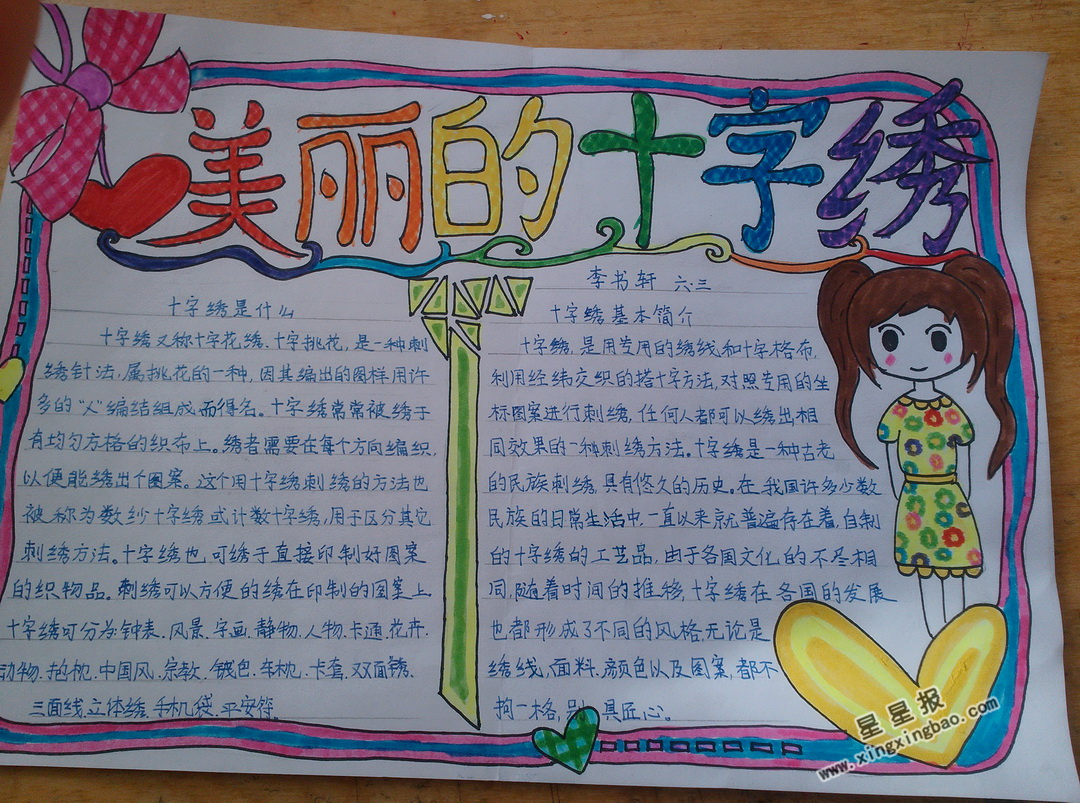 美丽的十字绣
李书轩 六.三
十字绣是什么
十字绣又称十字花绣、十字挑花，是一种刺
绣针法，属挑花的一种，因其编出的图样用许
多的“乂”编结组成而得名。十字绣常常被绣于
有均匀方格的织布上。绣者需要在每个方向编织，
以便能绣出个图案。这个用十字绣刺绣的方法也
被称为数纱十字绣或计数十字绣，用于区分其它
刺绣方法。十字绣也可绣于直接印制好图案
的织物品。刺绣可以方便的绣在印制的图案上
十字绣可分为钟表.风景.字画.静物.人物.卡通.花卉.
动物.抱枕.中国风.宗教.钱包.车枕.卡套.双面锈.
三面线.立体绣.手机袋.平安符。
十字绣基本简介
十字绣，是用专用的绣线和十字格布，
利用经纬交织的搭十字方法，对照专用的坐
标图案进行刺绣，任何人都可以绣出相
同效果的一种刺绣方法。十字绣是一种古老
的民族刺绣，具有悠久的历史。在我国许多少数
民族的日常生活中，一直以来就普遍存在着自制
的十字绣的工艺品，由于各国文化的不尽相
同，随着时间的推移，十字绣在各国的发展
也都形成了不同的风格，无论是
绣线、面料、颜色以及图案，都不
拘一格，别具匠心。
星星报
www.xingxingbao.com